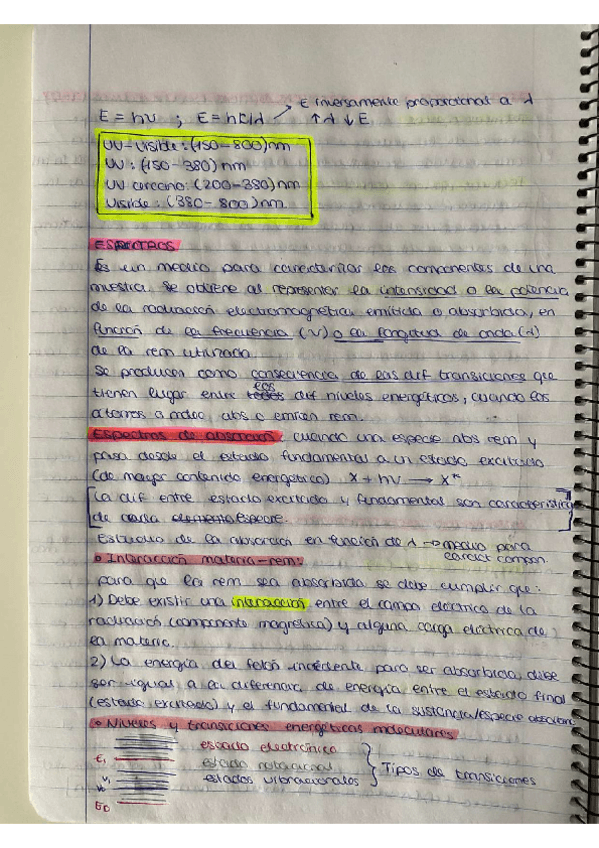 E inversamente proporcional a λ
E = hν ; E = hc/λ ↑ λ ↓ E
UV-Visible: (150-800)nm
UV: (150-380) nm
UV cercano: (200-380) nm
Visible: (380-800) nm
ESPECTROS
Es un medio para caracterizar los componentes de una
muestra. Se obtiene al representar la intensidad o la potencia
de la radiación electromagnética emitida o absorbida, en
función de la frecuencia (ν) o la longitud de onda (λ)
de la rem utilizada.
Se producen como consecuencia de las dif transiciones que
tienen lugar entre los dif niveles energéticos, cuando los
átomos o molec abs o emiten rem.
Espectros de absorción: cuando una especie abs rem y
pasa desde el estado fundamental a un estado excitado
(de mayor contenido energético) X + hν → X*
La dif entre estado excitado y fundamental son característica
de cada especie.
Estudio de la absorción en función de λ → medio para
caract compon.
• Interacción materia-rem:
para que la rem sea absorbida se debe cumplir que:
1) Debe existir una interacción entre el campo eléctrico de la
radiación (componente magnética) y alguna carga eléctrica de
la materia.
2) La energía del fotón incidente para ser absorbida, debe
ser igual a la diferencia de energía entre el estado final
(estado excitado) y el fundamental de la sustancia/especie
• Niveles y transiciones energéticas moleculares
estado electrónico
E₁ estado rotacional } Tipos de transiciones
V₁ estados vibracionales
V₀
E₀